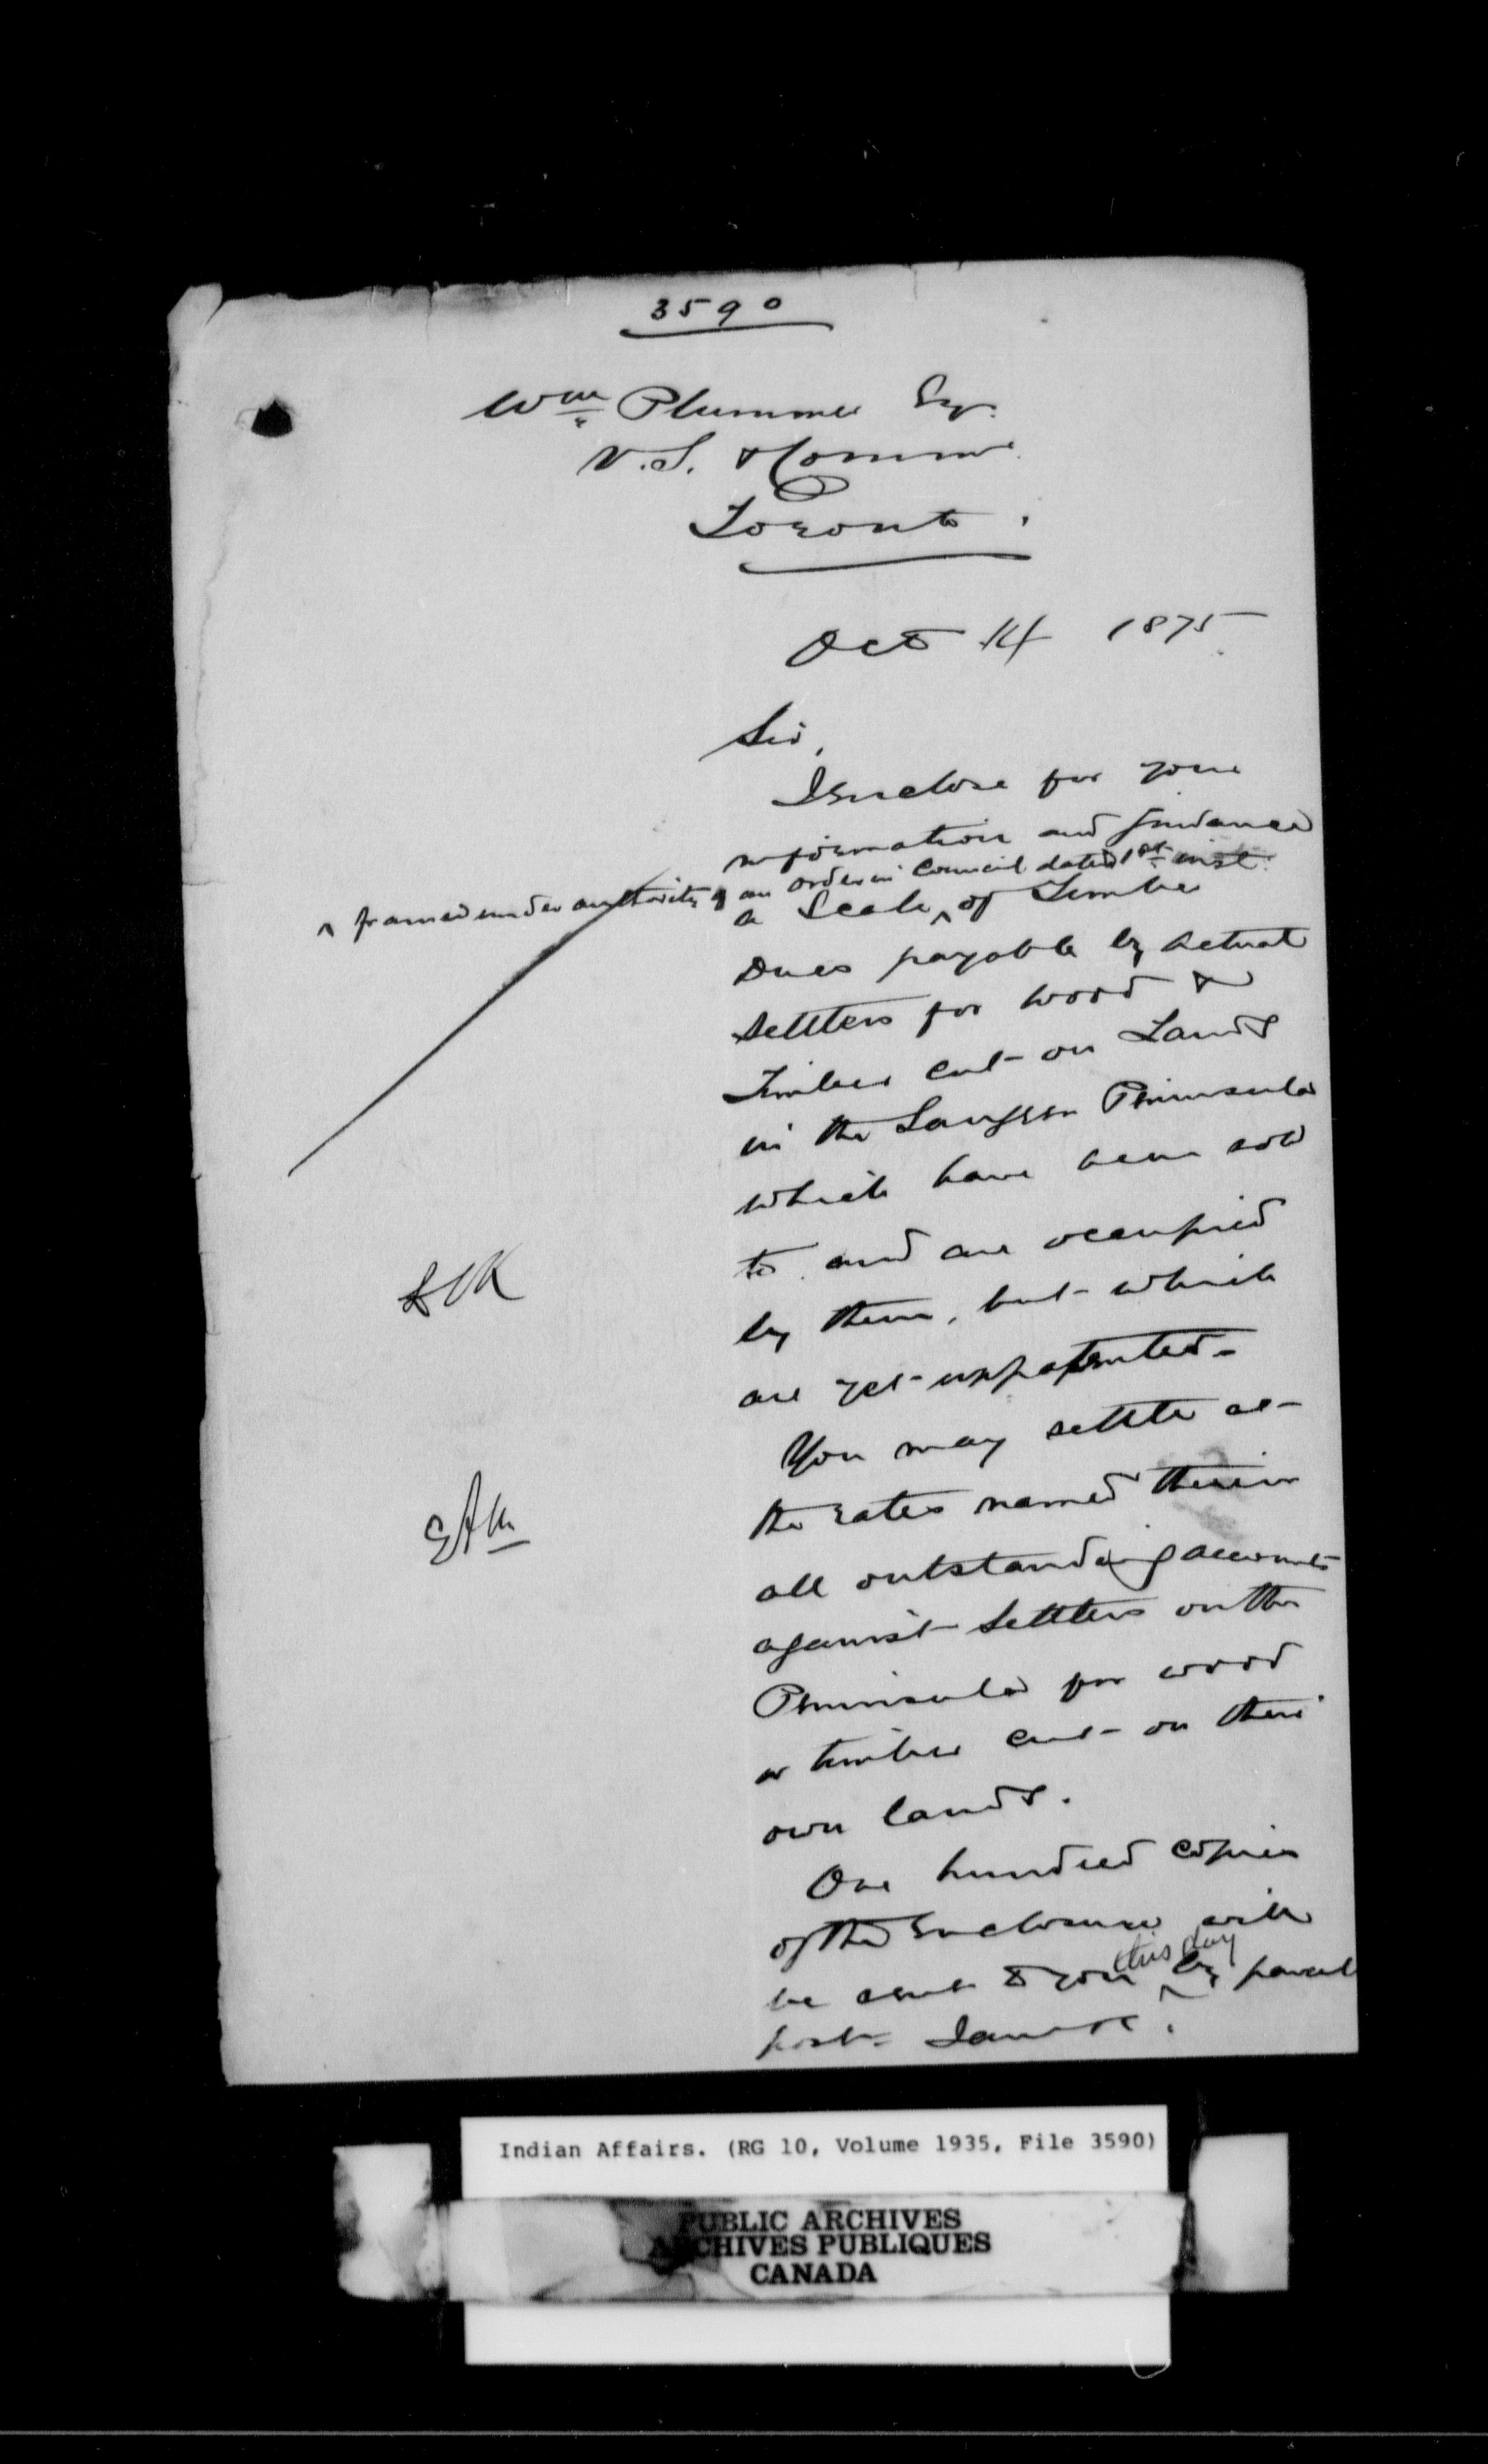 3590
Wm Plummer Esq.
V.S. & Comm
Toronto.
Oct 14 1875
Sir,
I enclose for your
information and guidance
^ framed under authority of an order in Council dated 1st inst.
a Scale ^ of Timber
Dues payable by actual
settlers for wood &
Timber cut on Lands
in the Saugeen Peninsula
which have been sold
to and are occupied
by them, but which
are yet unpatented.
You may settle at
the rates named therein
all outstanding accounts
against Settlers on the
Peninsula for wood
or timber cut on their
own lands.
One hundred copies
of the Enclosure will
this day
be sent to you ^ by parcel
post.
Indian Affairs. (RG 10, Volume 1935, File 3590)
PUBLIC ARCHIVES
ARCHIVES PUBLIQUES
CANADA